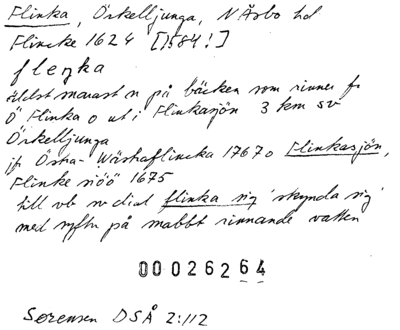 Flinka, Örkelljunga, N Åsbo hd
Flincke 1624 [1584!]
flenka
äldst snarast nn på bäcken som rinner fr
Ö Flinka o ut i Flinkasjön 3 km sv
Örkelljunga
jfr Östra- Wästraflincka 1767 o Flinkasjön,
Flincke siöö 1675
till vb sv dial flinka sig 'skynda sig'
med syftn på snabbt rinnande vatten
00026264
Sørensen DSÅ 2:112